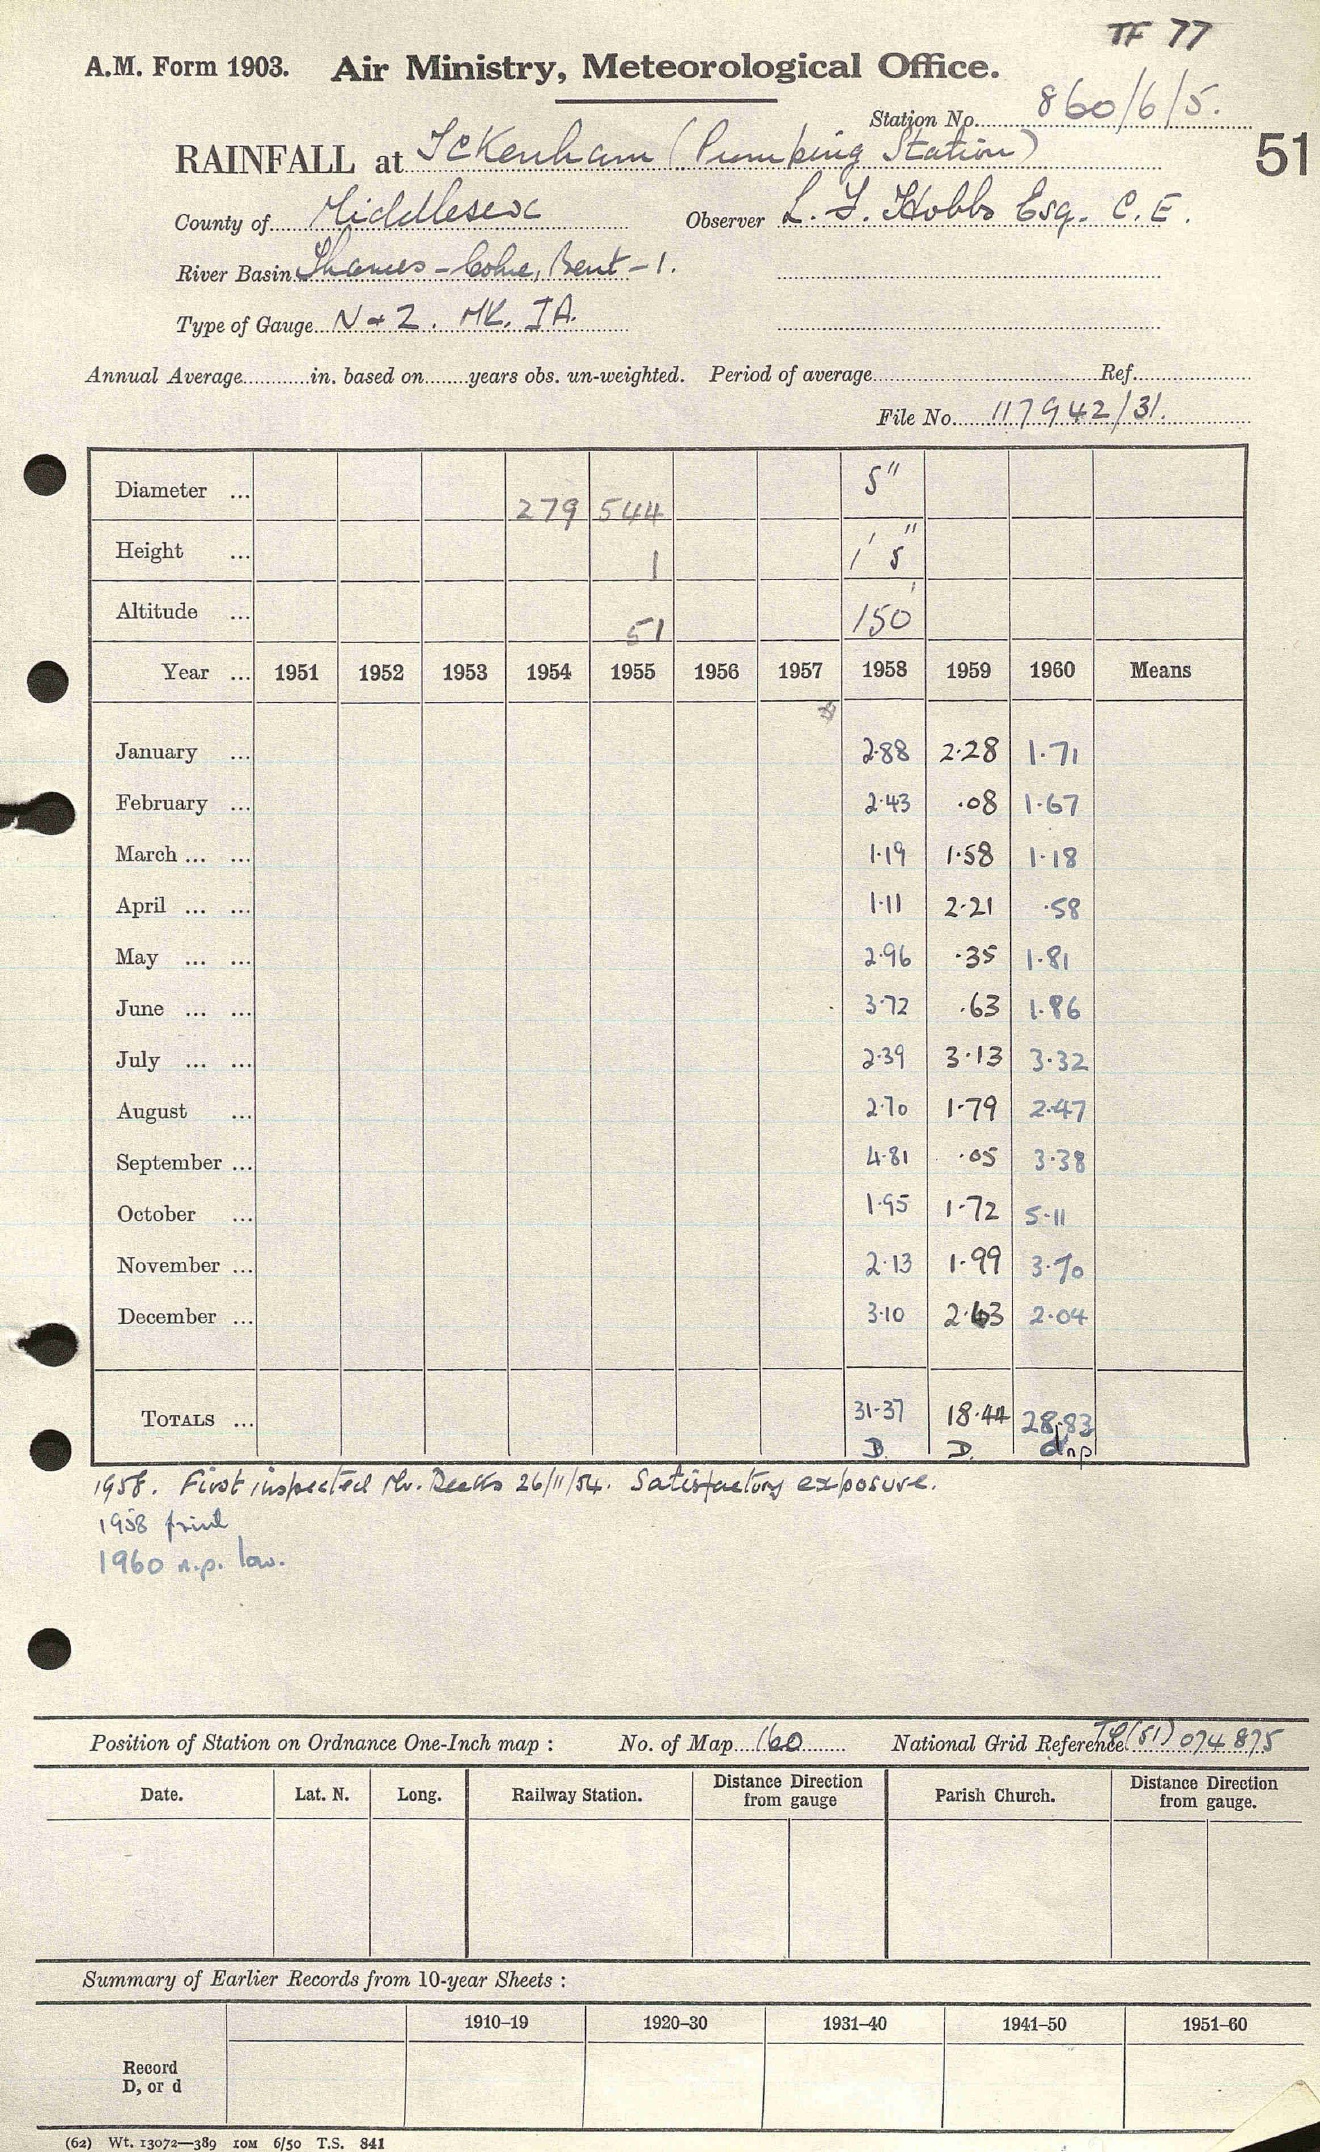 TF 77
A.M. Form 1903. Air Ministry, Meteorological Office.
Station No. 860/6/5.
RAINFALL at Ickenham (Pumping Station) 51
County of Middlesex Observer L. F. Hobbs Esq. C.E.
River Basin Thames - Colne, Brent - 1.
Type of Gauge N & Z. MK. IA.
Annual Average in. based on years obs. un-weighted. Period of average Ref.
File No. 117942/31.
Diameter ... 279 544 5"
Height ... 1 1' 5"
Altitude ... 51 150'
Year ... 1951 1952 1953 1954 1955 1956 1957 1958 1959 1960 Means
January ... 2.88 2.28 1.71
February ... 2.43 .08 1.67
March ... ... 1.19 1.58 1.18
April ... ... 1.11 2.21 .58
May ... ... 2.96 .35 1.81
June ... ... 3.72 .63 1.86
July ... ... 2.39 3.13 3.32
August ... 2.70 1.79 2.47
September ... 4.81 .05 3.38
October ... 1.95 1.72 5.11
November ... 2.13 1.99 3.70
December ... 3.10 2.63 2.04
TOTALS ... 31.37 18.44 28.83
D. D. d np
1958. First inspected Mr. Deeks 26/11/54. Satisfactory exposure.
1958 print
1960 n.p. low.
Position of Station on Ordnance One-Inch map : No. of Map 160 National Grid Reference (51) 074 875
Date. Lat. N. Long. Railway Station. Distance Direction from gauge Parish Church. Distance Direction from gauge.
Summary of Earlier Records from 10-year Sheets :
1910–19 1920–30 1931–40 1941–50 1951–60
Record
D, or d
(62) Wt. 13072—389 IOM 6/50 T.S. 841